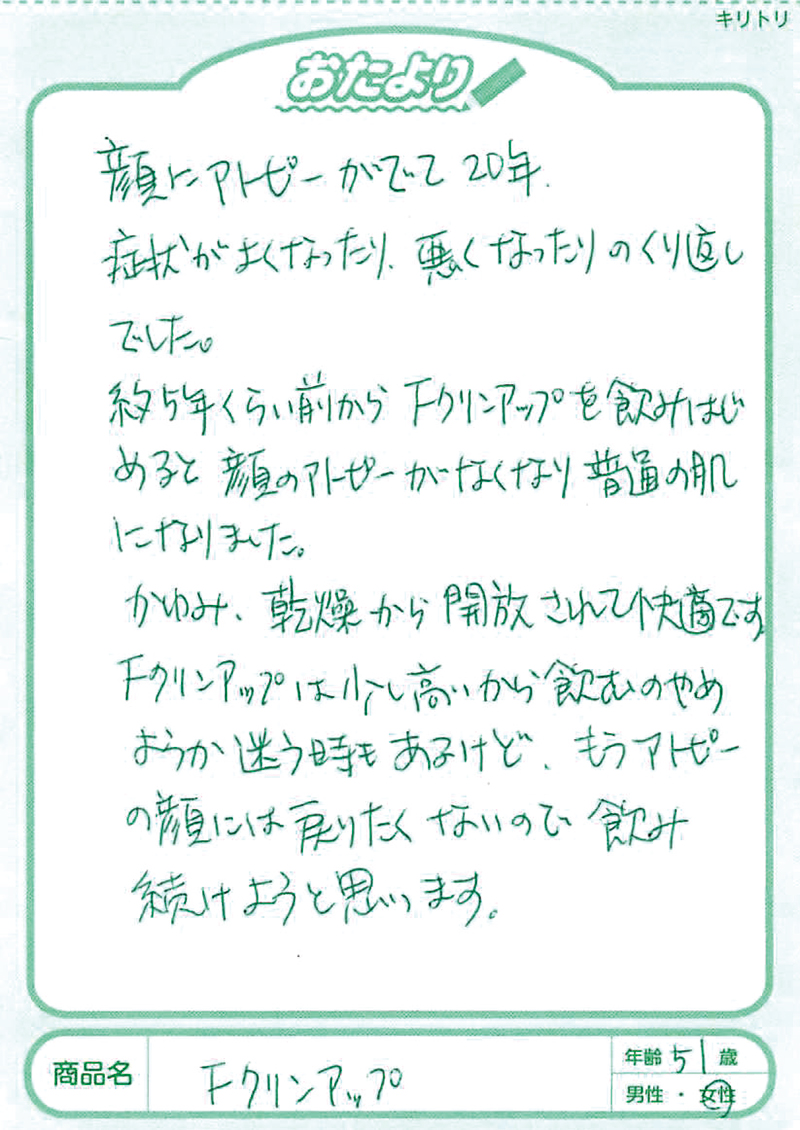 キリトリ
おたより
顔にアトピーがでて20年.
症状がよくなったり、悪くなったりのくり返し
でした。
約5年くらい前からFクリンアップを飲みはじ
めると顔のアトピーがなくなり普通の肌
になりました。
かゆみ、乾燥から開放されて快適です。
Fクリンアップは少し高いから飲むのやめ
ようか迷う時もあるけど、もうアトピー
の顔には戻りたくないので飲み
続けようと思います。
商品名 Fクリンアップ
年齢 51 歳
男性・女性